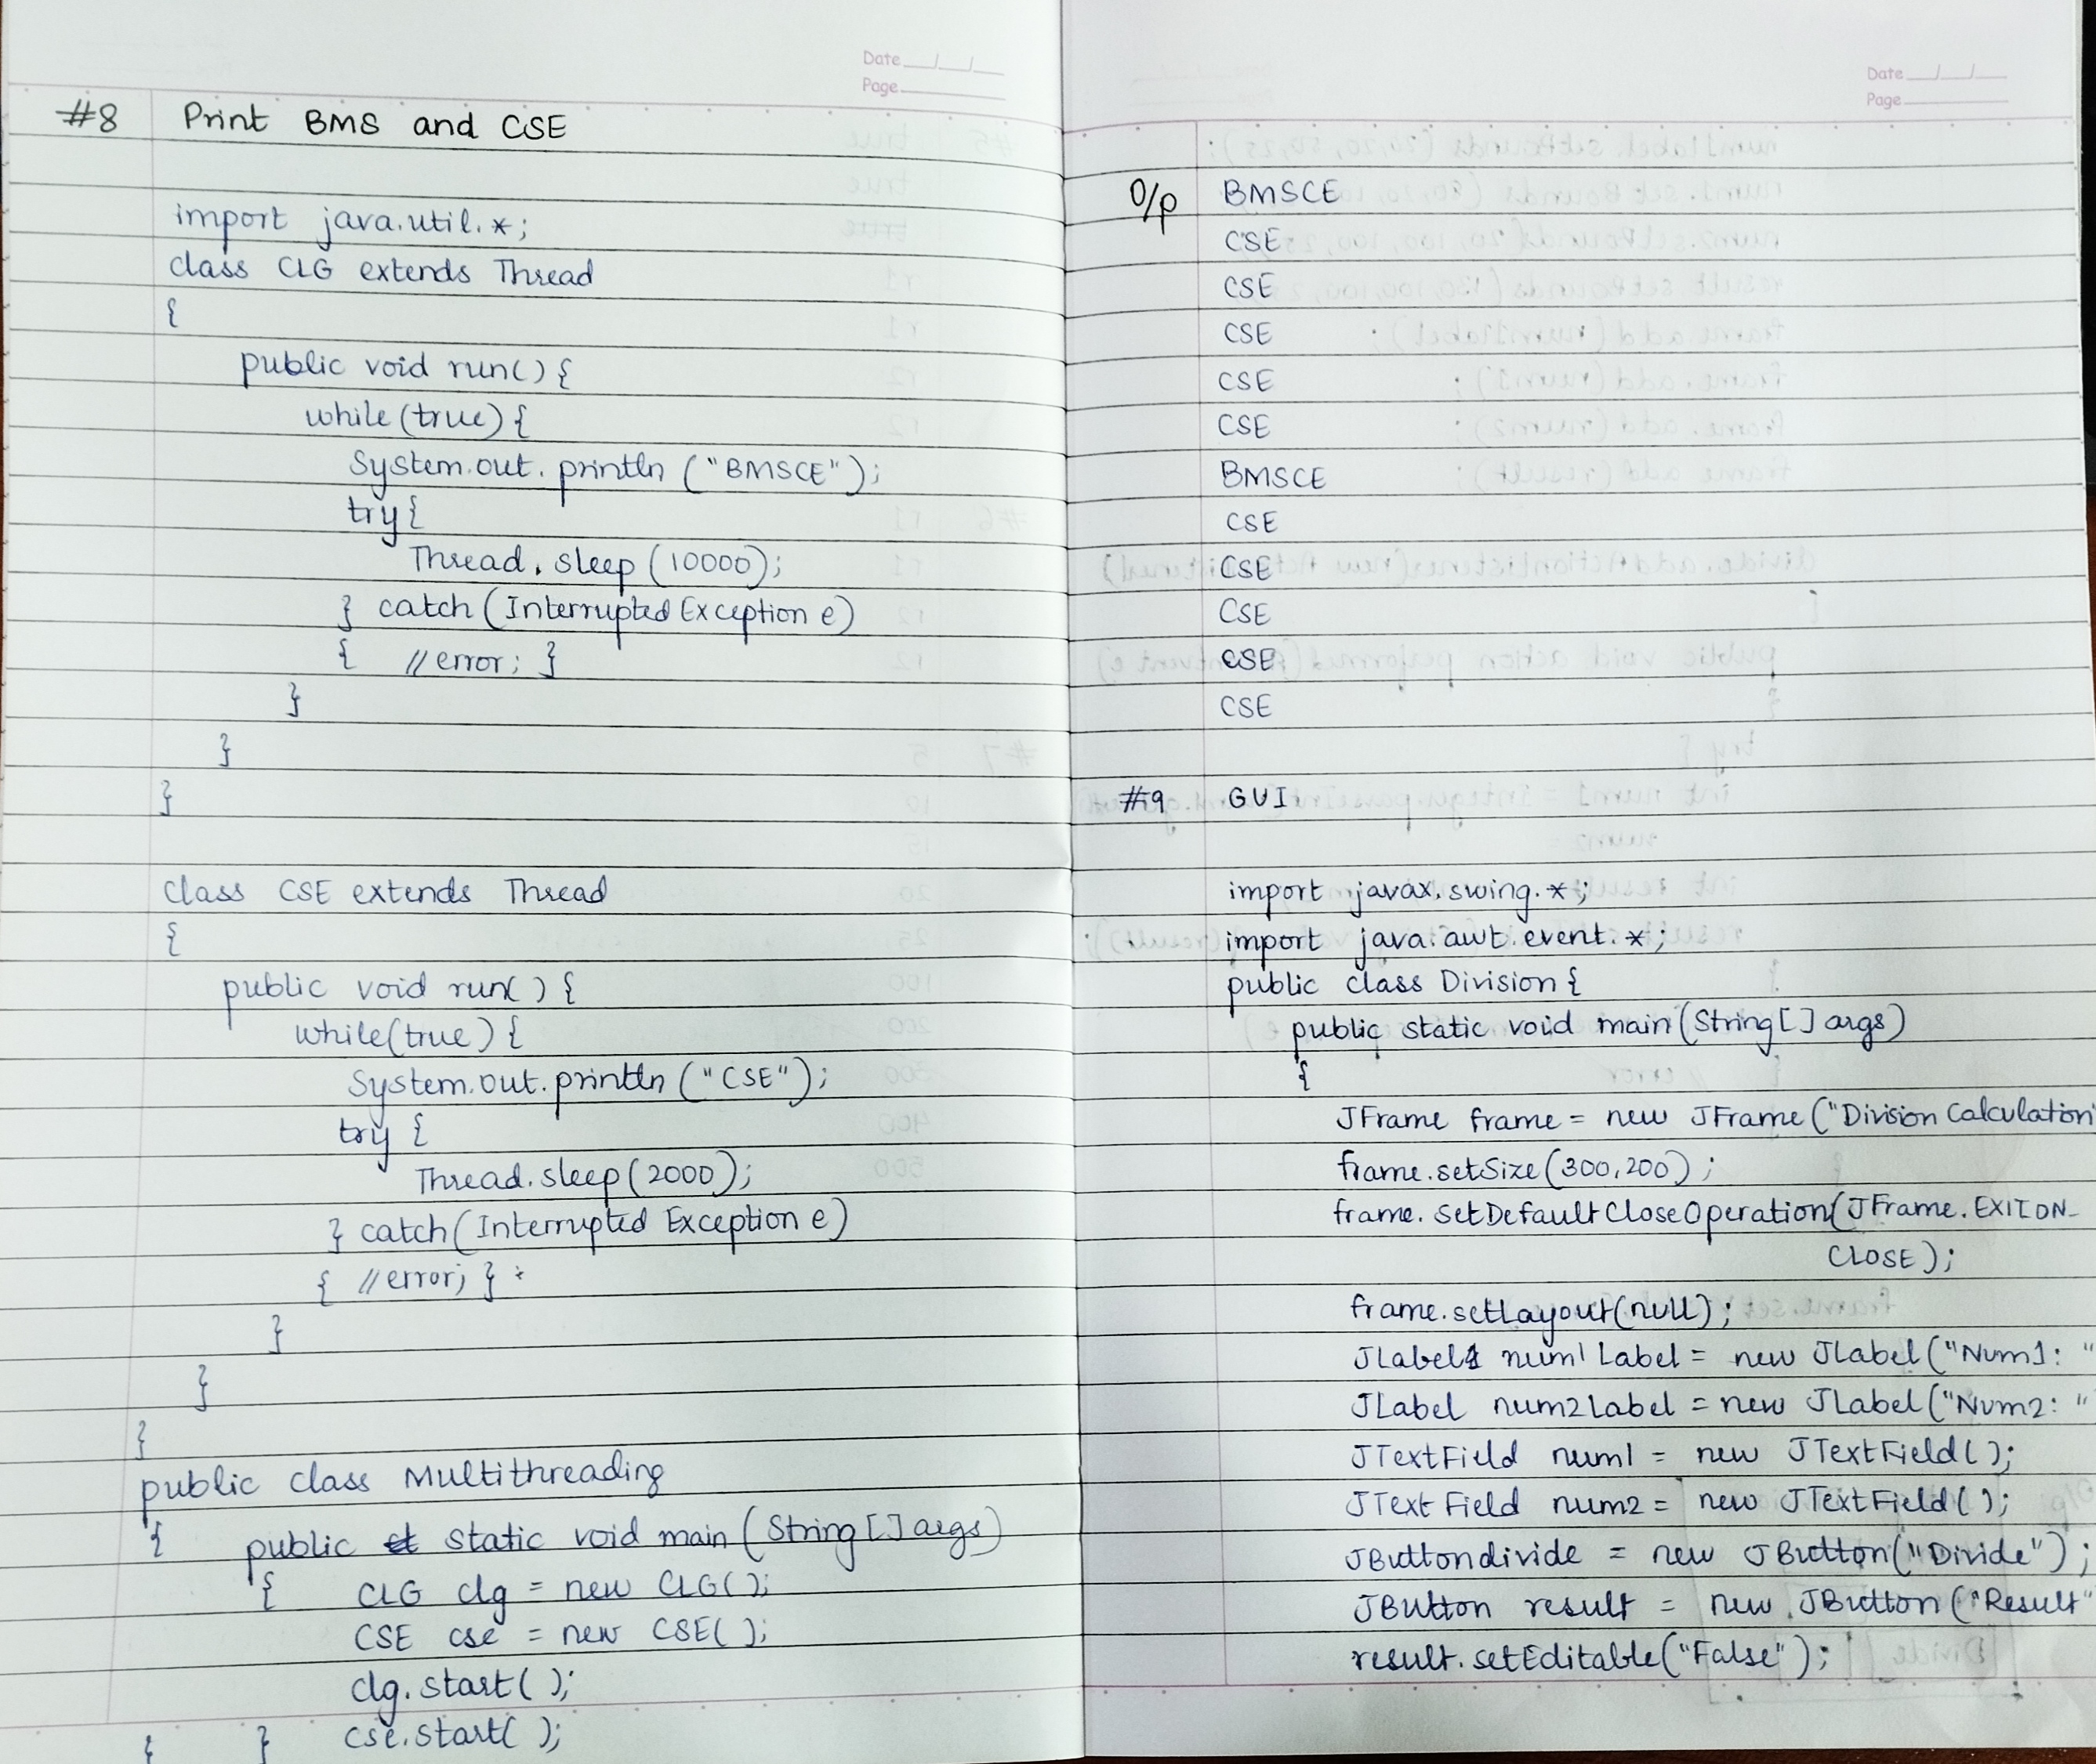 Date
Page
#8 Print BMS and CSE
import java.util.*;
class CLG extends Thread
{
public void run() {
while (true) {
System.out.println ("BMSCE");
try {
Thread.sleep (10000);
} catch (Interrupted Exception e)
{ // error; }
}
}
}
class CSE extends Thread
{
public void run() {
while (true) {
System.out.println ("CSE");
try {
Thread.sleep (2000);
} catch (Interrupted Exception e)
{ // error; }
}
}
}
public class Multithreading
{ public static void main (String [] args)
{ CLG clg = new CLG();
CSE cse = new CSE();
clg.start();
} } cse.start();
Date
Page
O/p BMSCE
CSE
CSE
CSE
CSE
CSE
BMSCE
CSE
CSE
CSE
CSE
CSE
#9 GUI
import javax.swing.*;
import java.awt.event.*;
public class Division {
public static void main (String [] args)
{
JFrame frame = new JFrame ("Division Calculation
frame.setSize (300,200);
frame.setDefaultCloseOperation (JFrame.EXITON_
CLOSE);
frame.setLayout(null);
JLabel num1 Label = new JLabel ("Num1: "
JLabel num2Label = new JLabel ("Num2: "
JTextField num1 = new JTextField();
JTextField num2 = new JTextField();
JButtondivide = new JButton("Divide");
JButton result = new JButton ("Result"
result.setEditable("False");